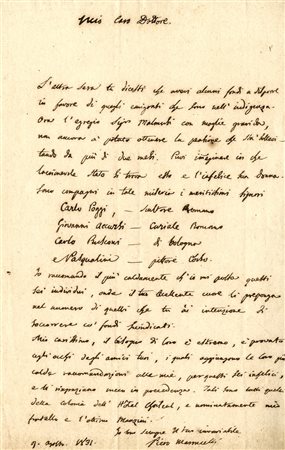 Mio Caro Dottore.
L'altra sera tu dicesti che avevi alcuni fondi a disporre
in favore di quegli emigrati che sono nell'indigenza.
Ora l'egregio Sigr Malmusi con moglie gravida,
non ancora à potuto ottenere la pensione che
da più di due mesi. Puoi imaginare in che
stato si trova esso e l'infelice sua donna.
Sono compagni in tale miseria i meritissimi Signori
Carlo Poggi, — Scultore Romano
Giovanni Accursi — Curiale Romano
Carlo Rusconi — di Bologna
e Pasqualini — pittore Corso.
Io raccomando il più caldamente ch'io mi possa questi
sei individui, onde il tuo eccellente cuore li preponga
nel numero di quelli che tu ài intenzione di
soccorrere co' fondi
Mio carissimo, il bisogno di loro è estremo, e provato
agli occhi degli amici tuoi, i quali aggiungono le loro più
calde raccomandazioni alle mie, per questi infelici,
e te ringraziano meco in precedenza. Tali sono tutti quelli
della colonia dell' Hôtel e nominatamente mio
fratello e l'ottimo Manzini.
Io son sempre il tuo invariabile
9. Agosto. 1831. Piero Maroncelli